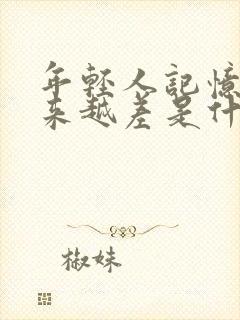 年轻人記憶
来越差是什
椒妹